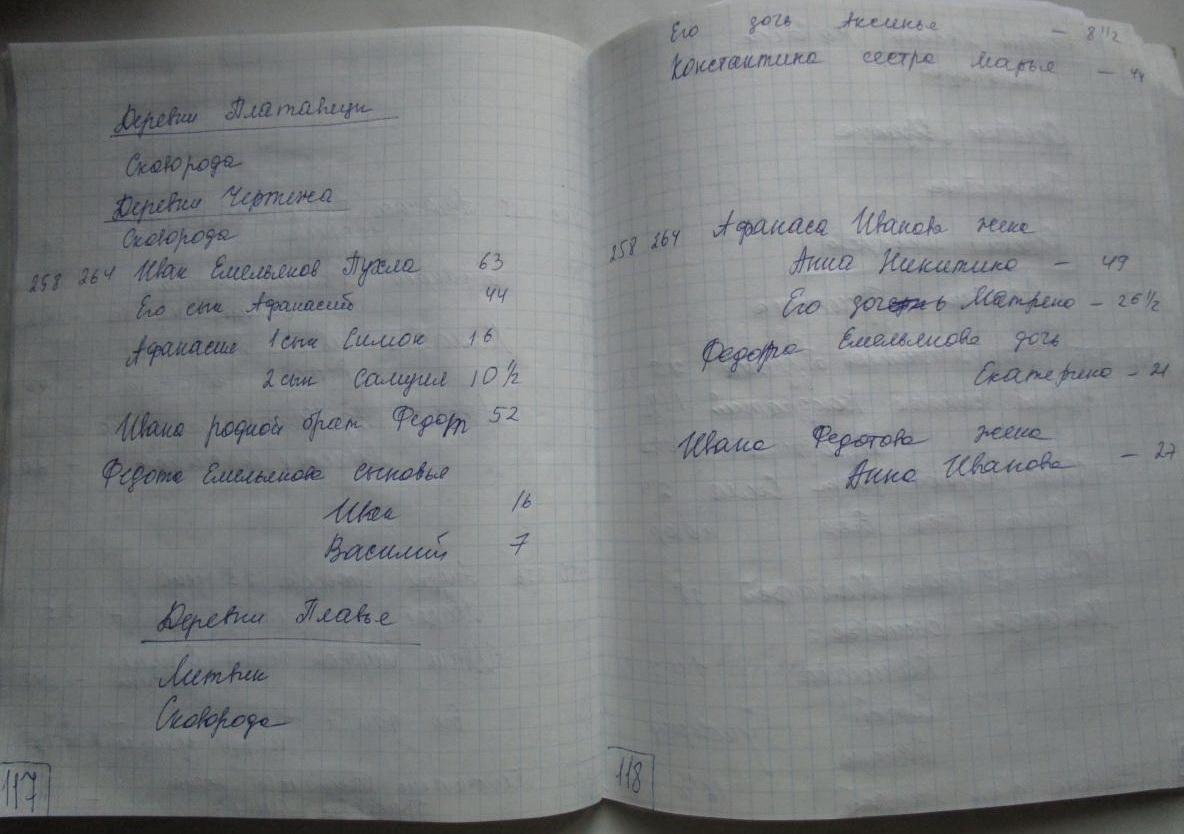 Деревни Платавицы
Сковорода
Деревни Чертежа
Сковорода
258 264 Иван Емельянов Пухла 63
Его сын Афанасий 44
Афанасия 1 сын Симон 16
2 сын Самуил 10 1/2
Ивана родной брат Федот 52
Федота Емельянова сыновья
Иван 16
Василий 7
Деревни Плавье
Литвин
Сковорода
117
Его дочь Аксинья – 8 1/2
Константина сестра Марья – 44
258 264 Афанаса Иванова жена
Анна Никитина – 49
Его дочь Матрена – 26 1/2
Федота Емельянова дочь
Екатерина – 21
Ивана Федотова жена
Анна Иванова – 27
118